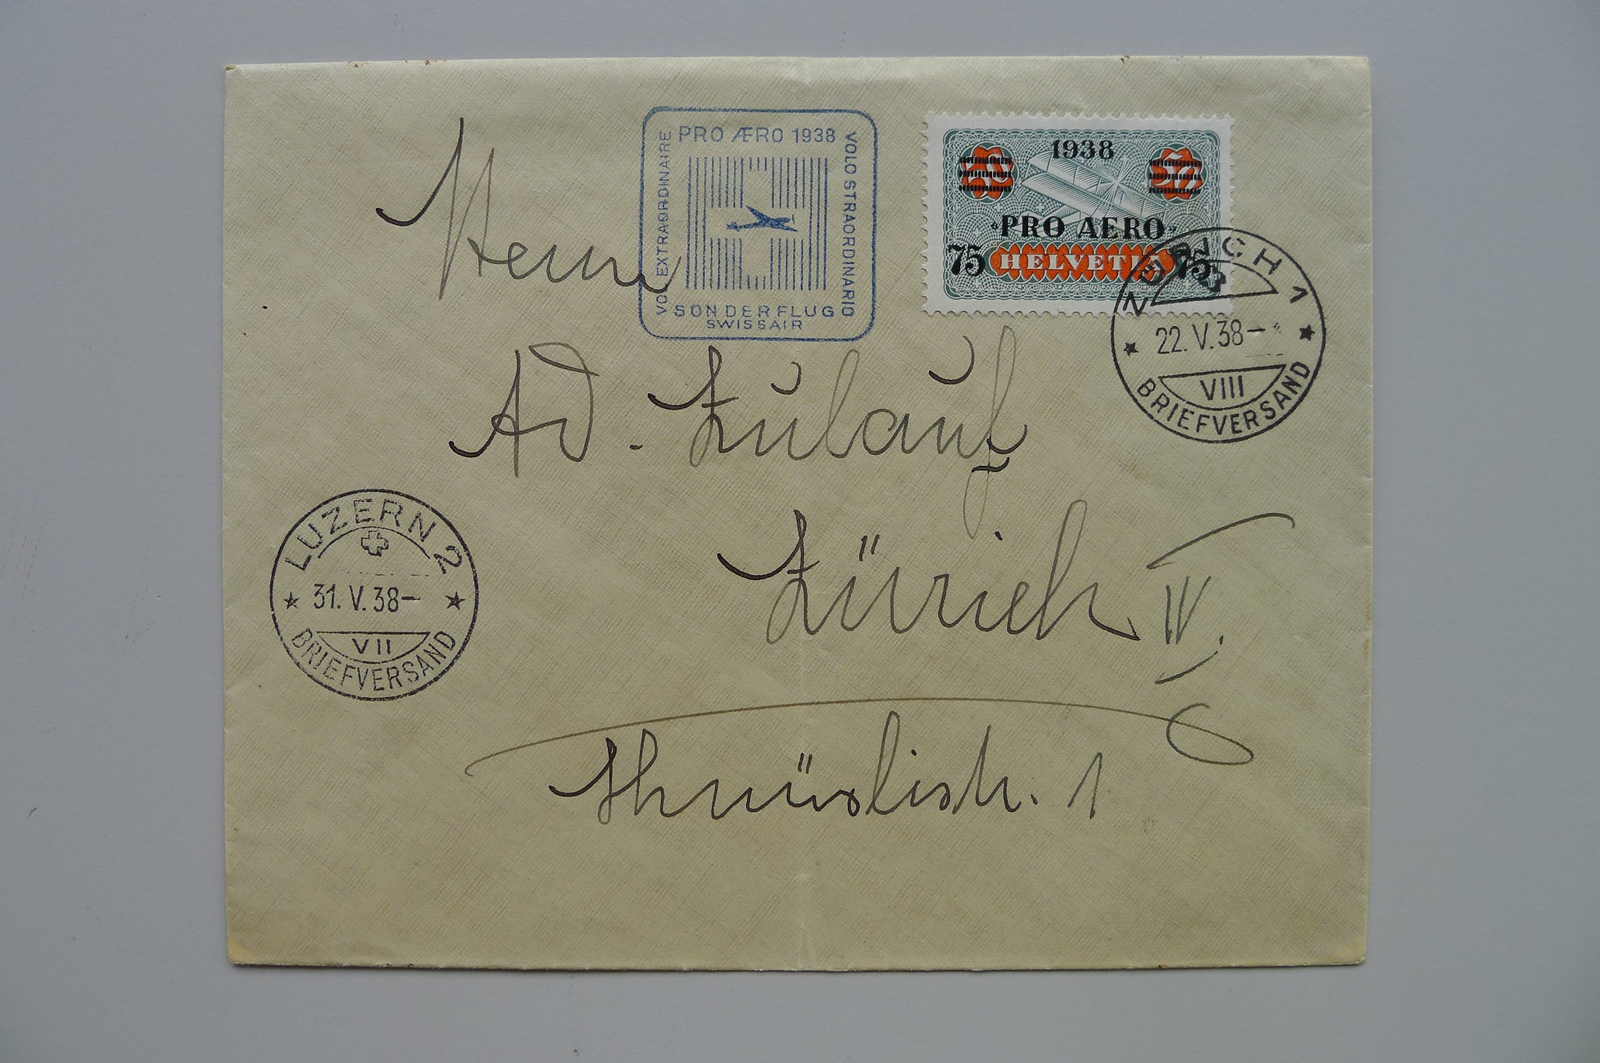 PRO ÆRO 1938
VOL EXTRAORDINAIRE
VOLO STRAORDINARIO
SONDERFLUG
SWISSAIR
1938
PRO AERO
75 HELVETIA 75
ZÜRICH 1
22.V.38–
VIII
BRIEFVERSAND
Herrn
Ad. Zulauf
Zürich IV.
LUZERN 2
31.V.38–
VII
BRIEFVERSAND
1